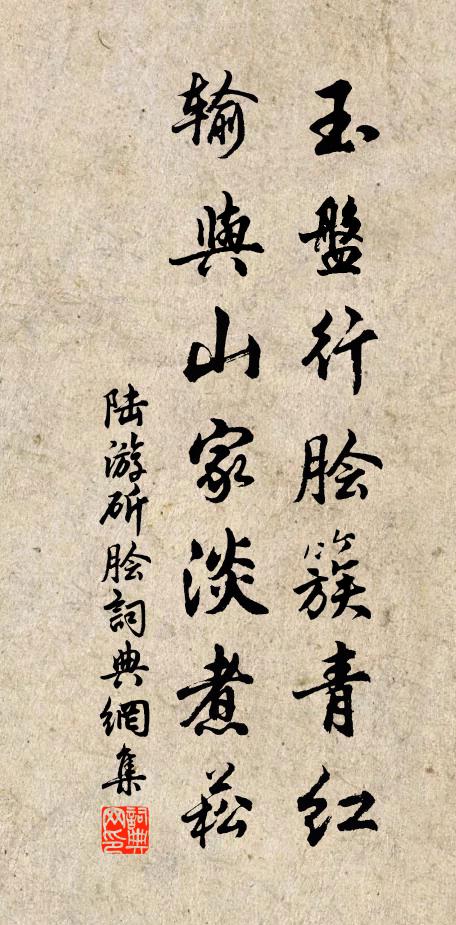 玉盤行脍簇青红
输與山家淡煮菘
陆游斫脍詞典網集
詞典网印